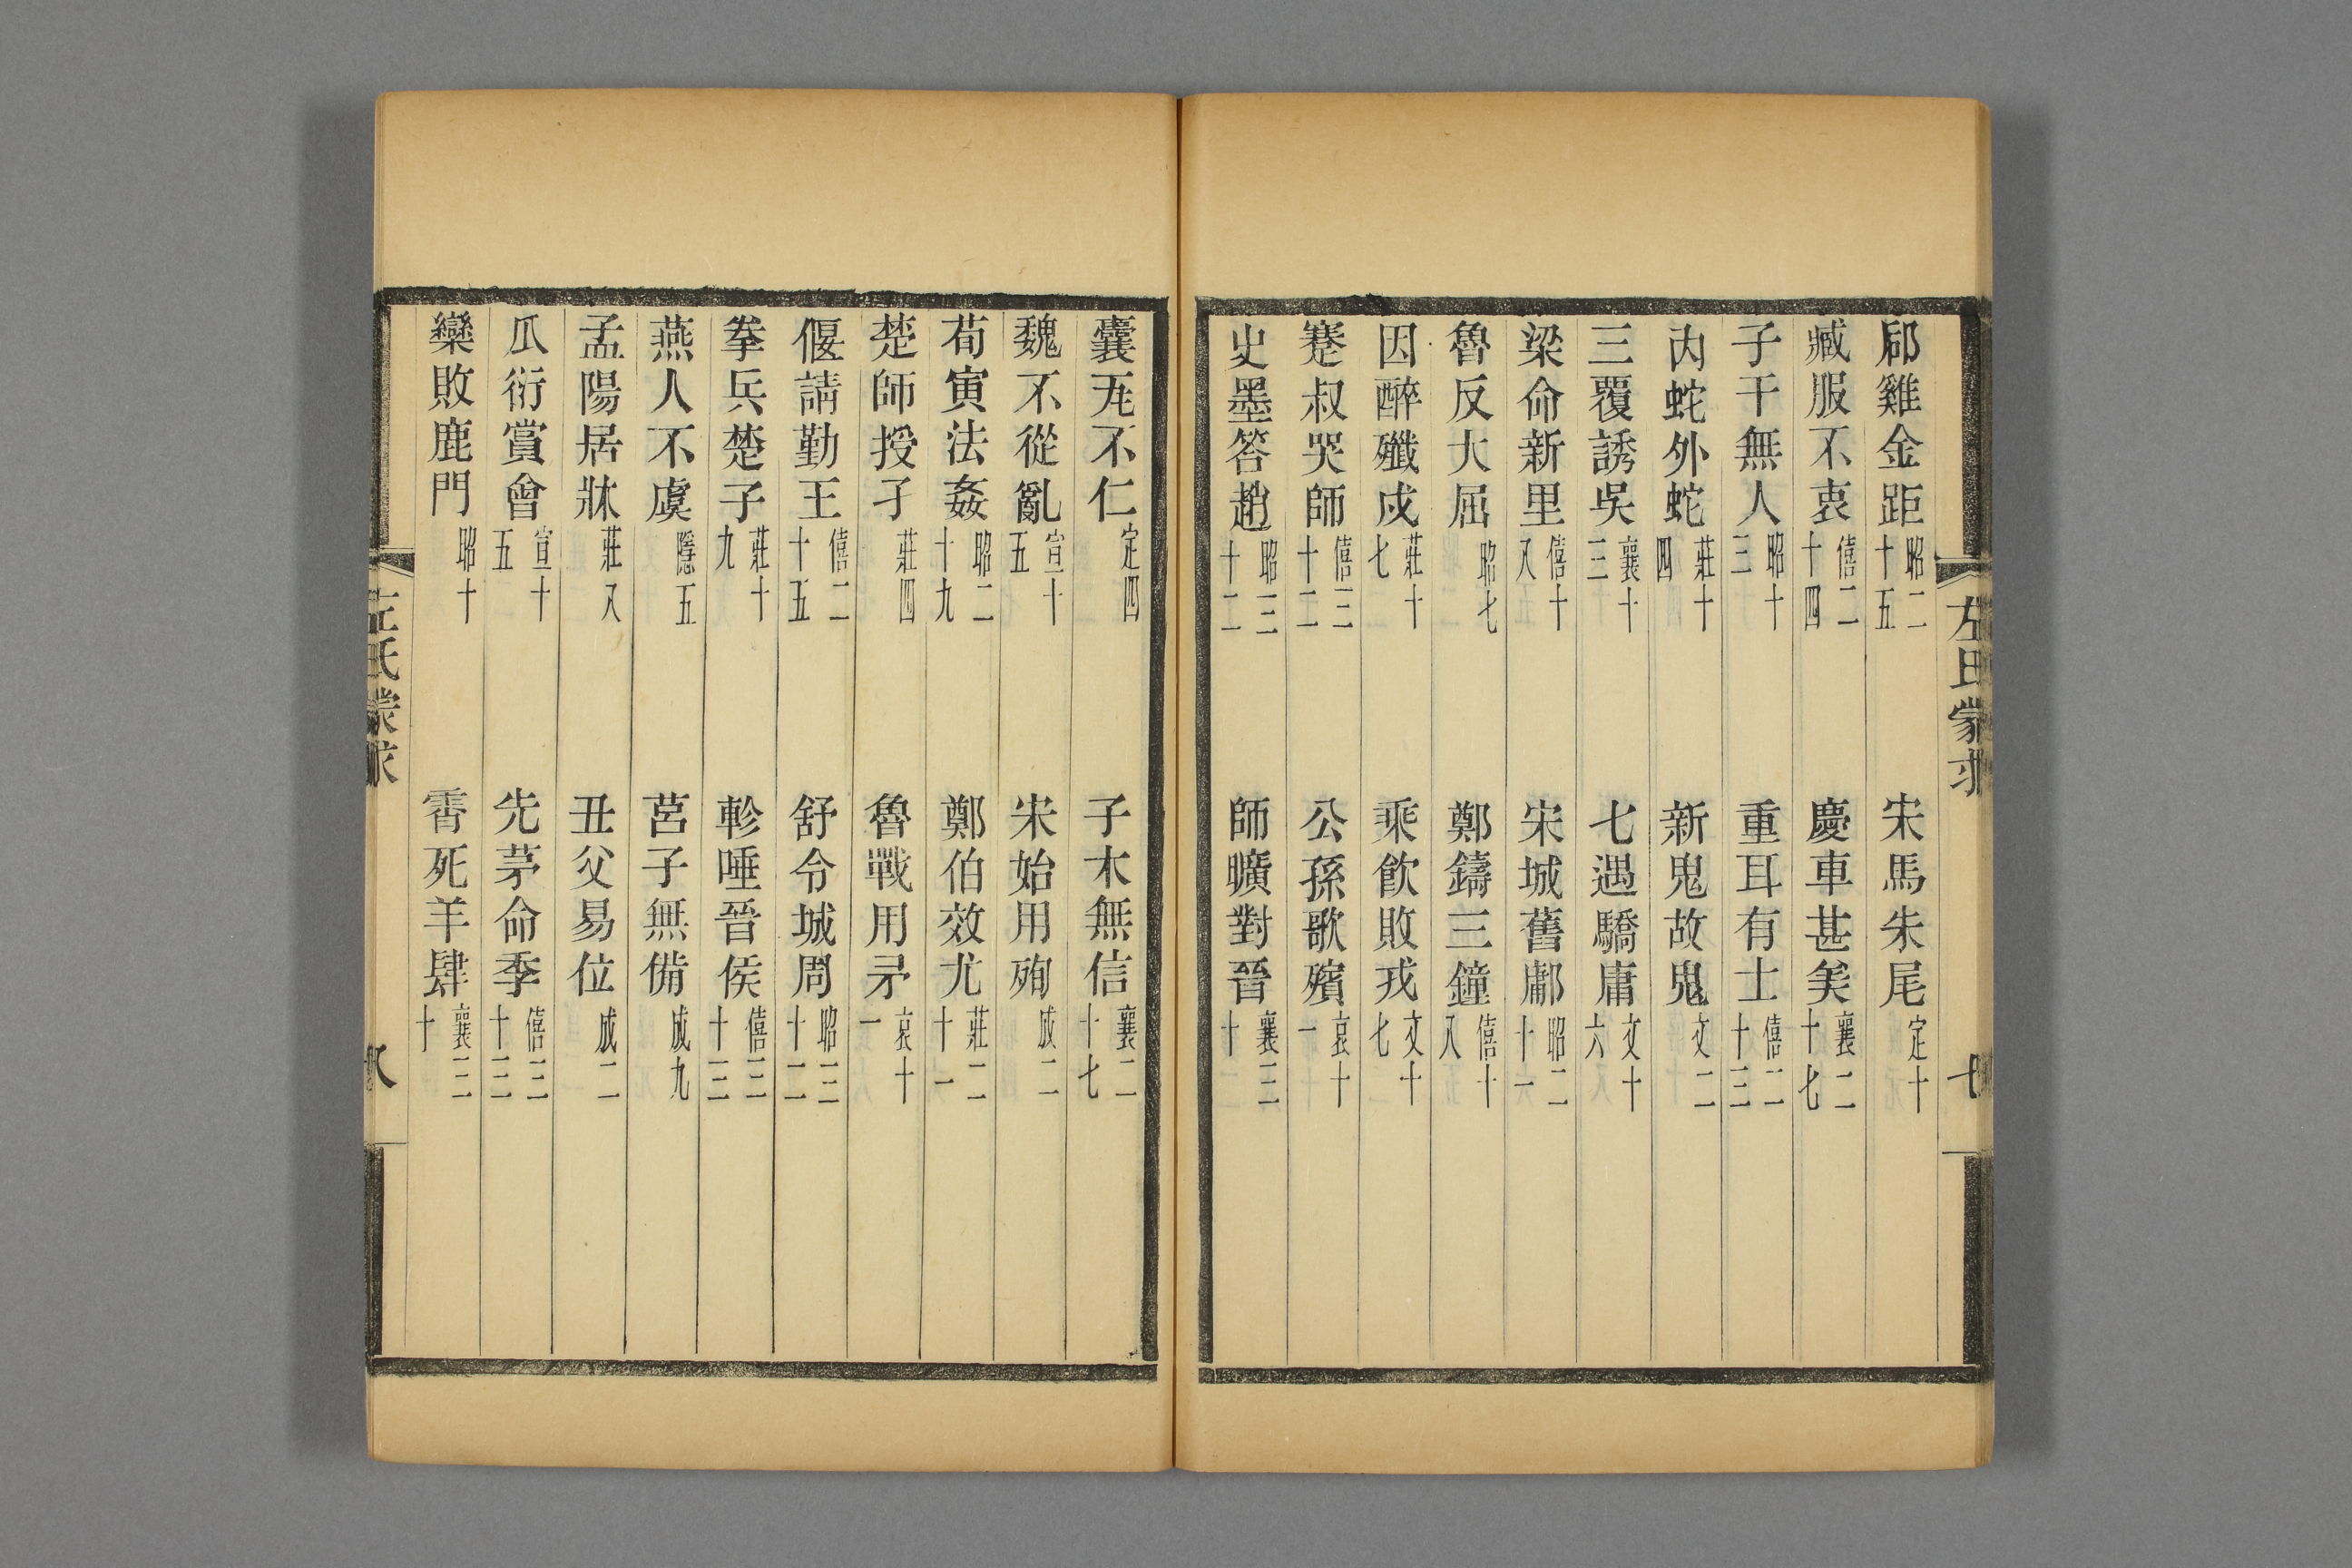 左氏蒙求
七
郈雞金距昭二十五 宋馬朱尾定十
臧服不衷僖二十四 慶車甚美襄二十七
子干無人昭十三 重耳有士僖二十三
內蛇外蛇莊十四 新鬼故鬼文二
三覆誘吳襄十三 七遇驕庸文十六
梁命新里僖十八 宋城舊鄘昭二十一
魯反大屈昭七 鄭鑄三鐘僖十八
因醉殲戍莊十七 乘飲敗戎文十七
蹇叔哭師僖三十二 公孫歌殯哀十一
史墨答趙昭三十二 師曠對晉襄三十
囊瓦不仁定四 子木無信襄二十七
魏不從亂宣十五 宋始用殉成二
荀寅法姦昭二十九 鄭伯效尤莊二十一
楚師授孑莊四 魯戰用矛哀十一
偃請勤王僖二十五 舒令城周昭三十二
拳兵楚子莊十九 軫唾晉侯僖三十三
燕人不虞隱五 莒子無備成九
孟陽居牀莊八 丑父易位成二
瓜衍賞會宣十五 先茅命季僖三十三
欒敗鹿門昭十 霄死羊肆襄三十
左氏蒙求
八